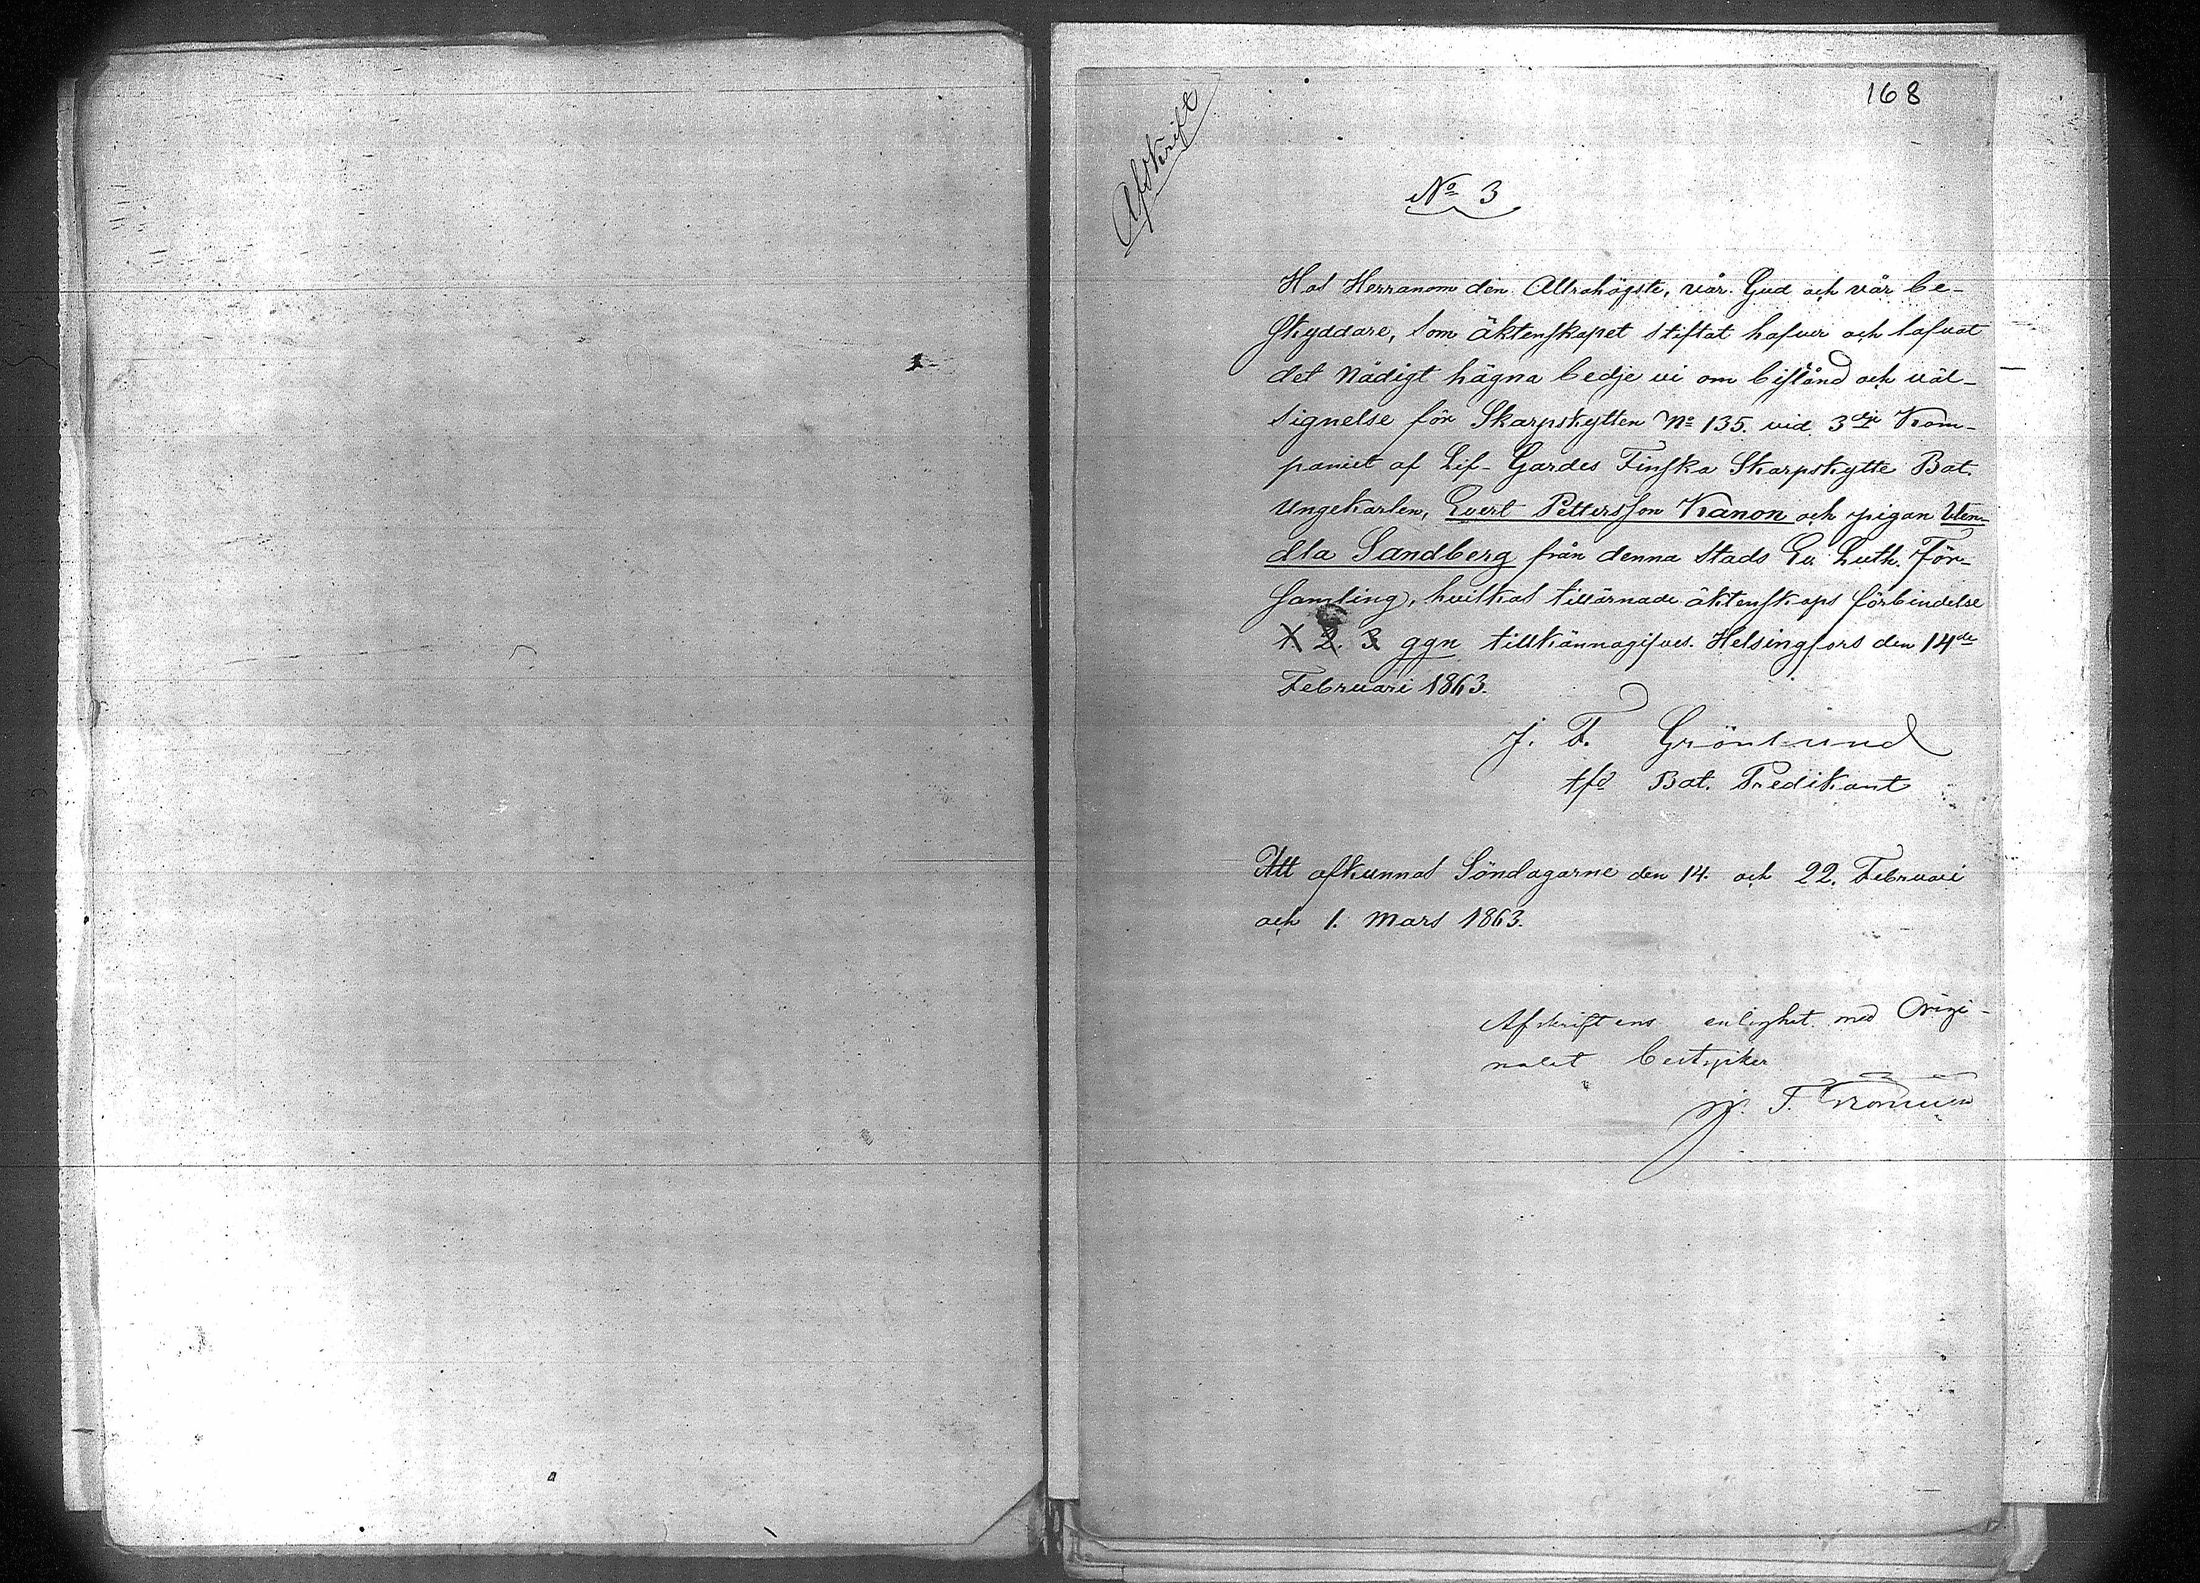 168
Afskrift
No 3
Hos Herranom den Allrahögste, vår Gud och vår be-
skyddare, som äktenskapet stiftat hafver och lofvat
det nådigt hägna bedje vi om bistånd och väl-
signelse för Skarpskytten No 135. vid 3dje Kom-
paniet af Lif-Gardes Finska Skarpskytte Bat.
Ungekarlen, Evert Pettersson Kanon och pigan Wen-
dla Sandberg från denna Stads Ev. Luth. För-
samling, hvilkas tillärnade äktenskaps förbindelse
1. 2. 3 ggn tillkännagifves. Helsingfors den 14de
Februari 1863.
J. F. Grönlund
tfd Bat. Predikant
Att afkunnas Söndagarne den 14. och 22. Februari
och 1. Mars 1863.
Afskriftens enlighet med Origi-
nalet bestyrker
J. F.